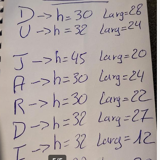 D → h=30 Larg=28
U → h=32 Larg=24
J → h=45 Larg=20
A → h=30 Larg=24
R → h=30 Larg=22
D → h=32 Larg=27
I → h=32 Larg=12